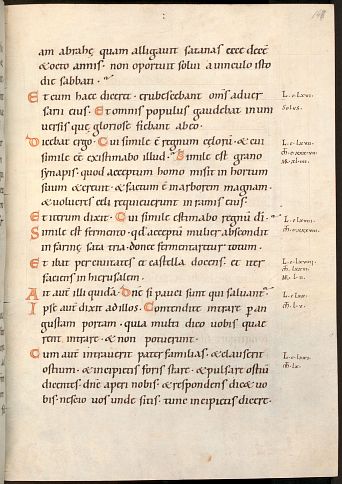 148
am abrahę quam alligauit satanas ecce decē
& octo annis · non oportuit solui a uinculo isto
die sabbati ·
Et cum haec diceret · erubescebant oms̄ aduer
sarii eius · Et omnis populus gaudebat in uni
solus
uersis quę gloriose fiebant ab eo ·
Dicebat ergo · Cui simile ē regnum cęlorū · & cui
simile ēē existimabo illud · Simile est grano
synapis · quod acceptum homo misit in hortum
suum & creuit · & factum ē in arborem magnam ·
& uolucres cęli requieuerunt in ramis eius ·
Et iterum dixit · Cui simile estimabo regnū dī ·
Simile est fermento · qd̄ acceptū mulier abscondit
in farinę sata tria · donec fermentaretur totum ·
Et ibat per ciuitates et castella docens · et iter
faciens in hierusalem ·
Ait aut̄ illi quidā · Dnē si pauci sunt qui saluant̄ ·
Ipse aut̄ dixit ad illos · Contendite intrare p an
gustam portam · quia multi dico uobis quae
rent intrare · & non poterunt ·
Cum aut̄ intrauerit pater familias · & clauserit
ostium · & incipietis foris stare · & pulsare ostiū
dicentes · dnē aperi nobis · & respondens dic& uo
bis · nescio uos unde sitis · tunc incipietis dicere ·